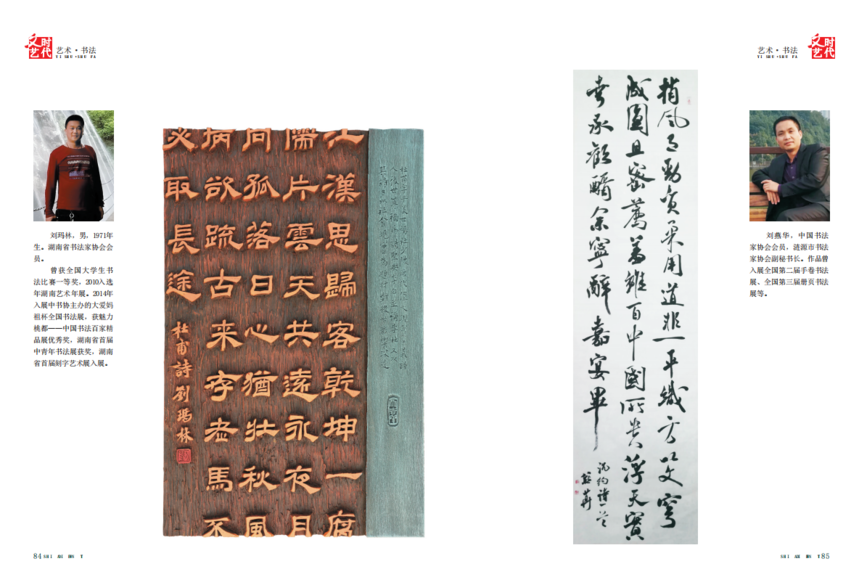 时代
文艺
艺术·书法
YI SHU·SHU FA
刘玛林，男，1971年
生。湖南省书法家协会会
员。
曾获全国大学生书
法比赛一等奖，2010入选
年湖南艺术年展。2014年
入展中书协主办的大爱妈
祖杯全国书法展，获魅力
桃都——中国书法百家精
品展优秀奖，湖南省首届
中青年书法展获奖，湖南
省首届刻字艺术展入展。
江漢思歸客乾坤一腐
儒片雲天共遠永夜月
同孤落日心猶壯秋風
病欲疏古来存老馬不
必取長途
杜甫詩劉瑪林
84
艺术·书法
YI SHU·SHU FA
时代
文艺
梢風有勁質柔用道非一平織方以文穹
成圓且密薦羞雖百中國所貴溥天實
幸承歡醑餘寧辭嘉宴畢
沈約詩一首
刘燕华，中国书法
家协会会员，涟源市书法
家协会副秘书长。作品曾
入展全国第二届手卷书法
展、全国第三届册页书法
展等。
85